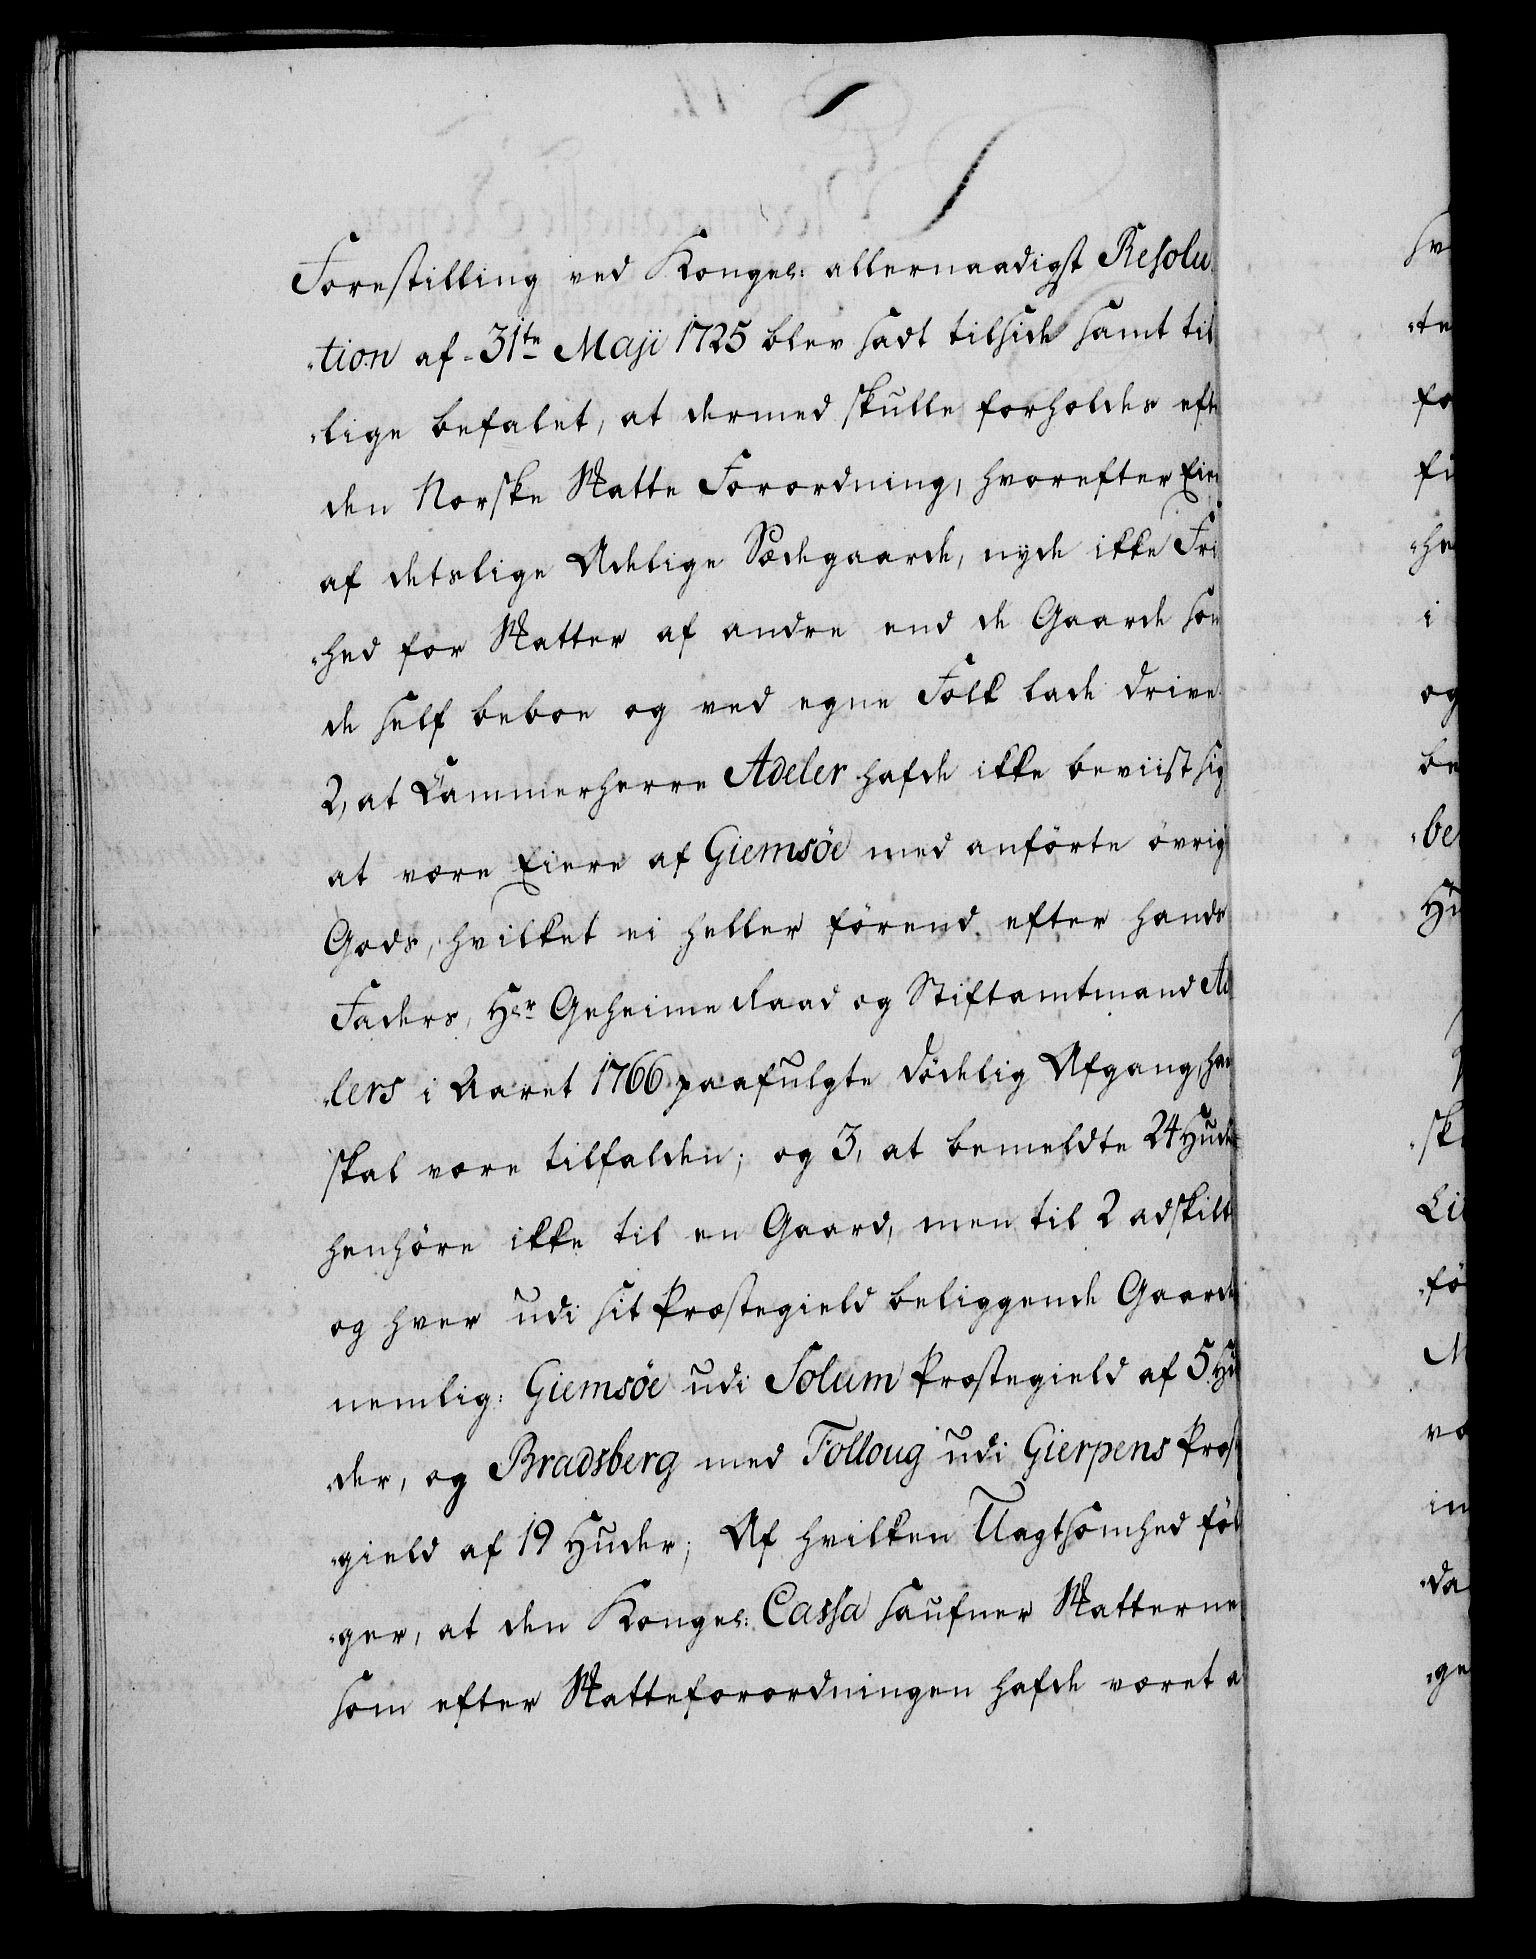 Forestilling ved Kongel: allernaadigst Resolu
-tion af 31te Maji 1725 blev sadt tilside samt til
-lige befalet, at dermed skulle forholdes efte
den Norske Skatte Forordning, hvorefter Eier
af deslige Adelige Sædegaarde, nyde ikke Fri
-hed for Skatter af andre end de Gaarde som
de self beboe og ved egne Folk lade drive
2, at Cammerherre Adeler hafde ikke beviist sig
at være Eiere af Giemsöe med anförte övrig
Gods, hvilket ei heller förend efter hands
Faders, Hr Geheime Raad og Stiftamtmand Ad
-lers i Aaret 1766 paafulgte dödelig Afgang, ham
skal være tilfalden; og 3, at bemeldte 24 Huder
henhöre ikke til en Gaard, men til 2 adskilt
og hver udi sit Præstegield beliggende Gaarde
nemlig: Giemsöe udi Solum Præstegield af 5 Hu
-der, og Bradsberg med Folloug udi Gierpens Præst
-gield af 19 Huder; Af hvilken Uagtsomhed föl
-ger, at den Kongel: Cassa saufner Skatterne
som efter Skatteforordningen hafde været a